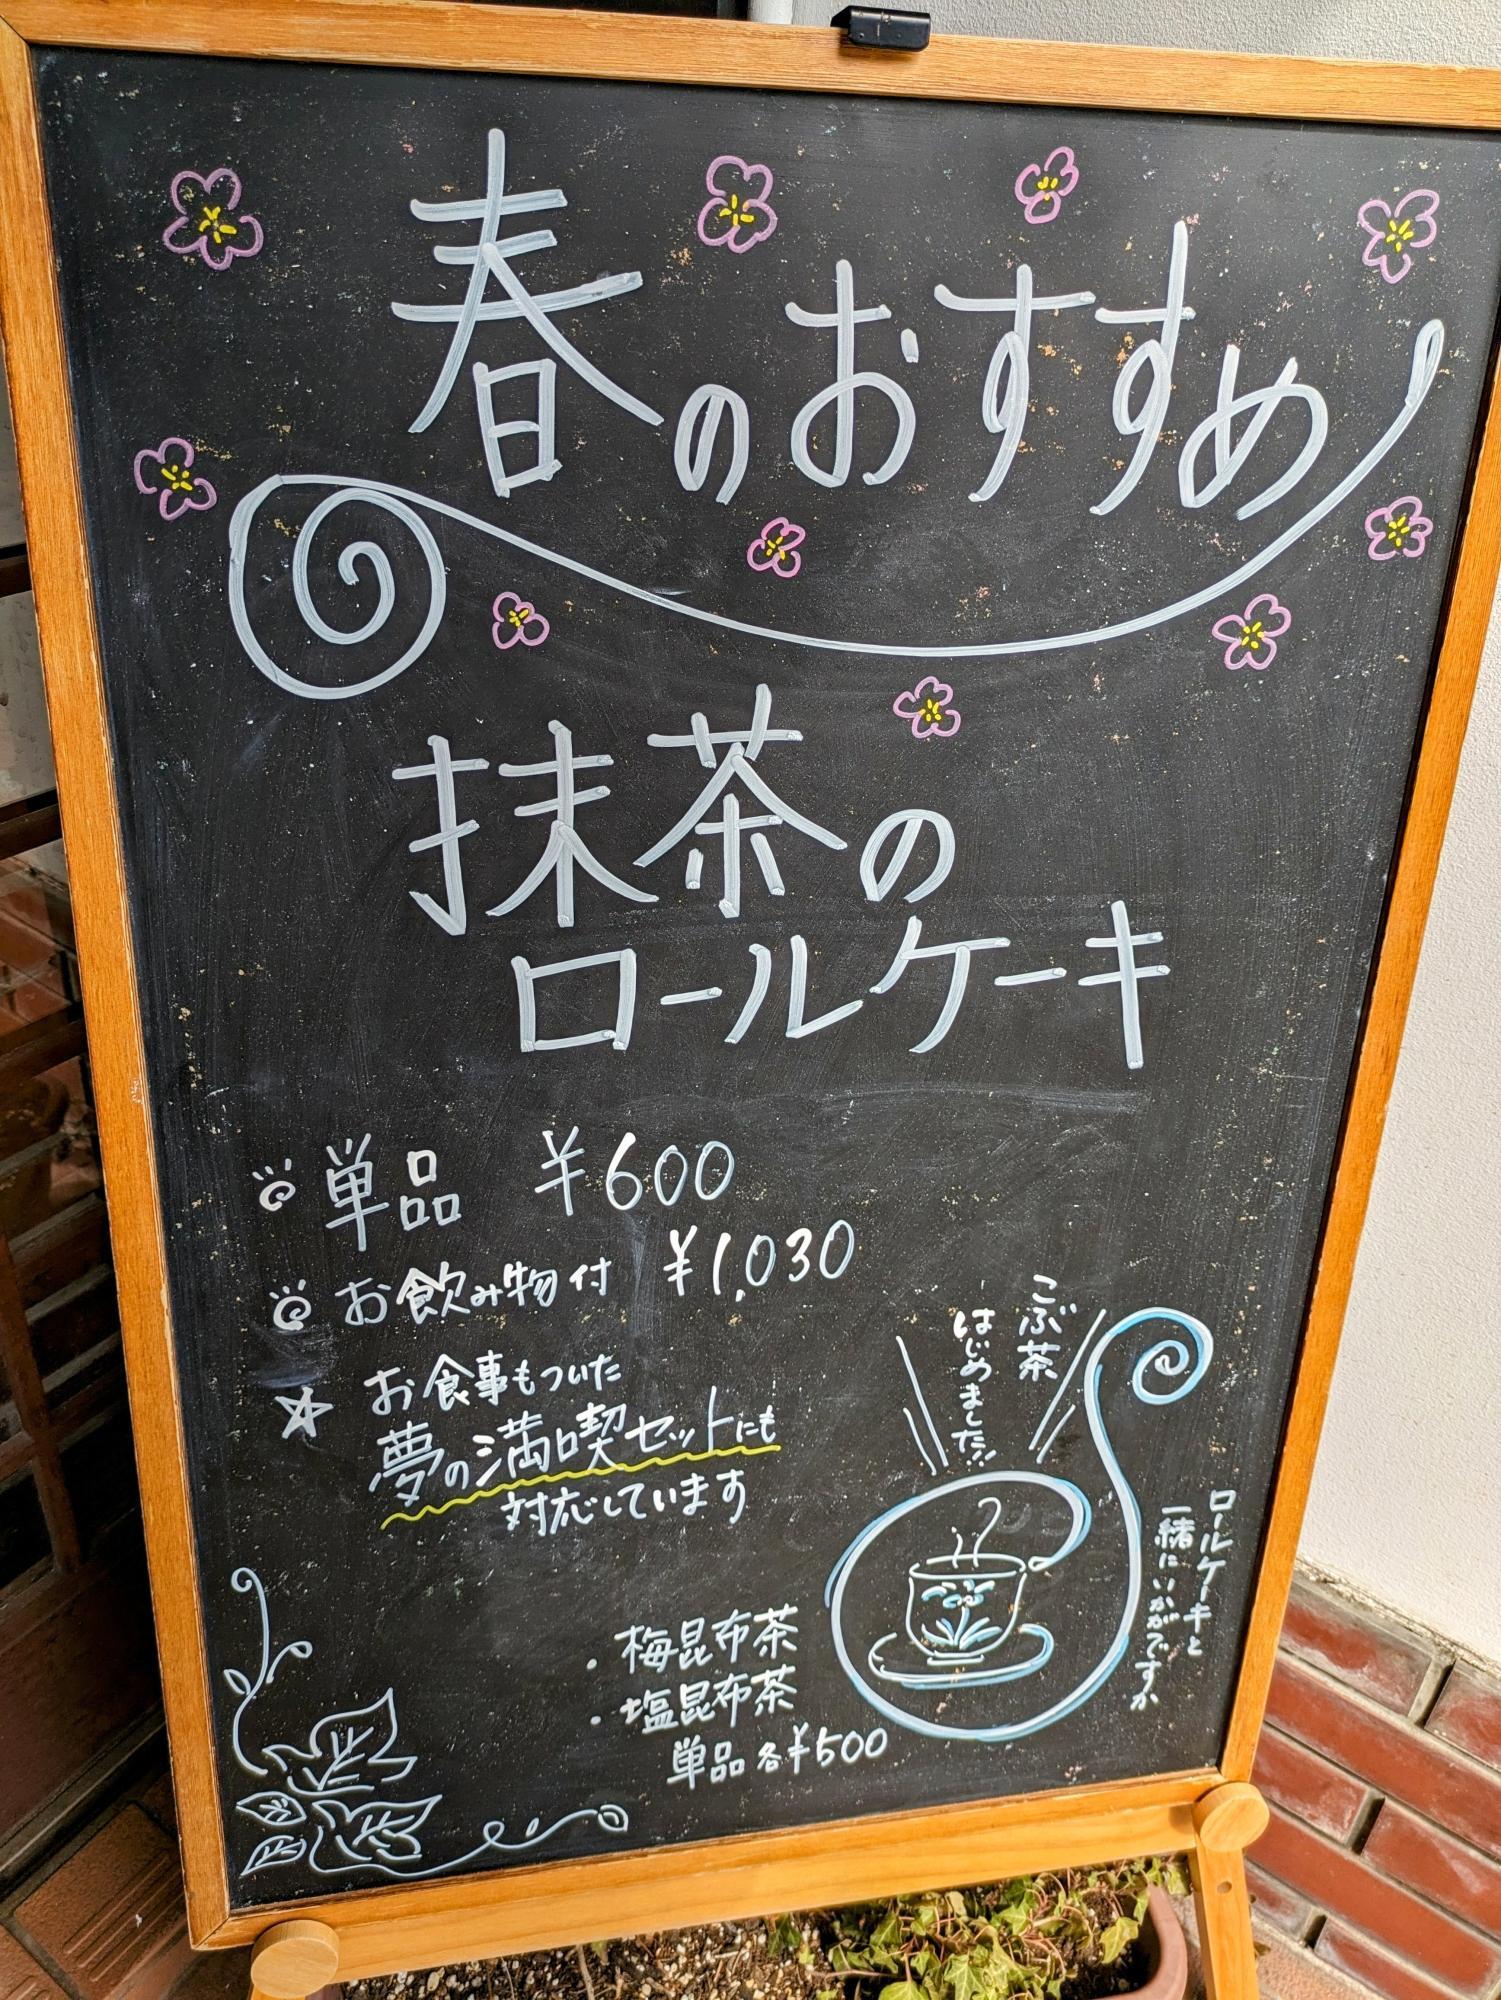 春のおすすめ
抹茶の
ロールケーキ
単品 ¥600
お飲み物付 ¥1,030
☆ お食事もついた
夢の満喫セットにも
対応しています
こぶ茶
はじめました!!
ロールケーキと
一緒にいかがですか
・梅昆布茶
・塩昆布茶
単品 各¥500